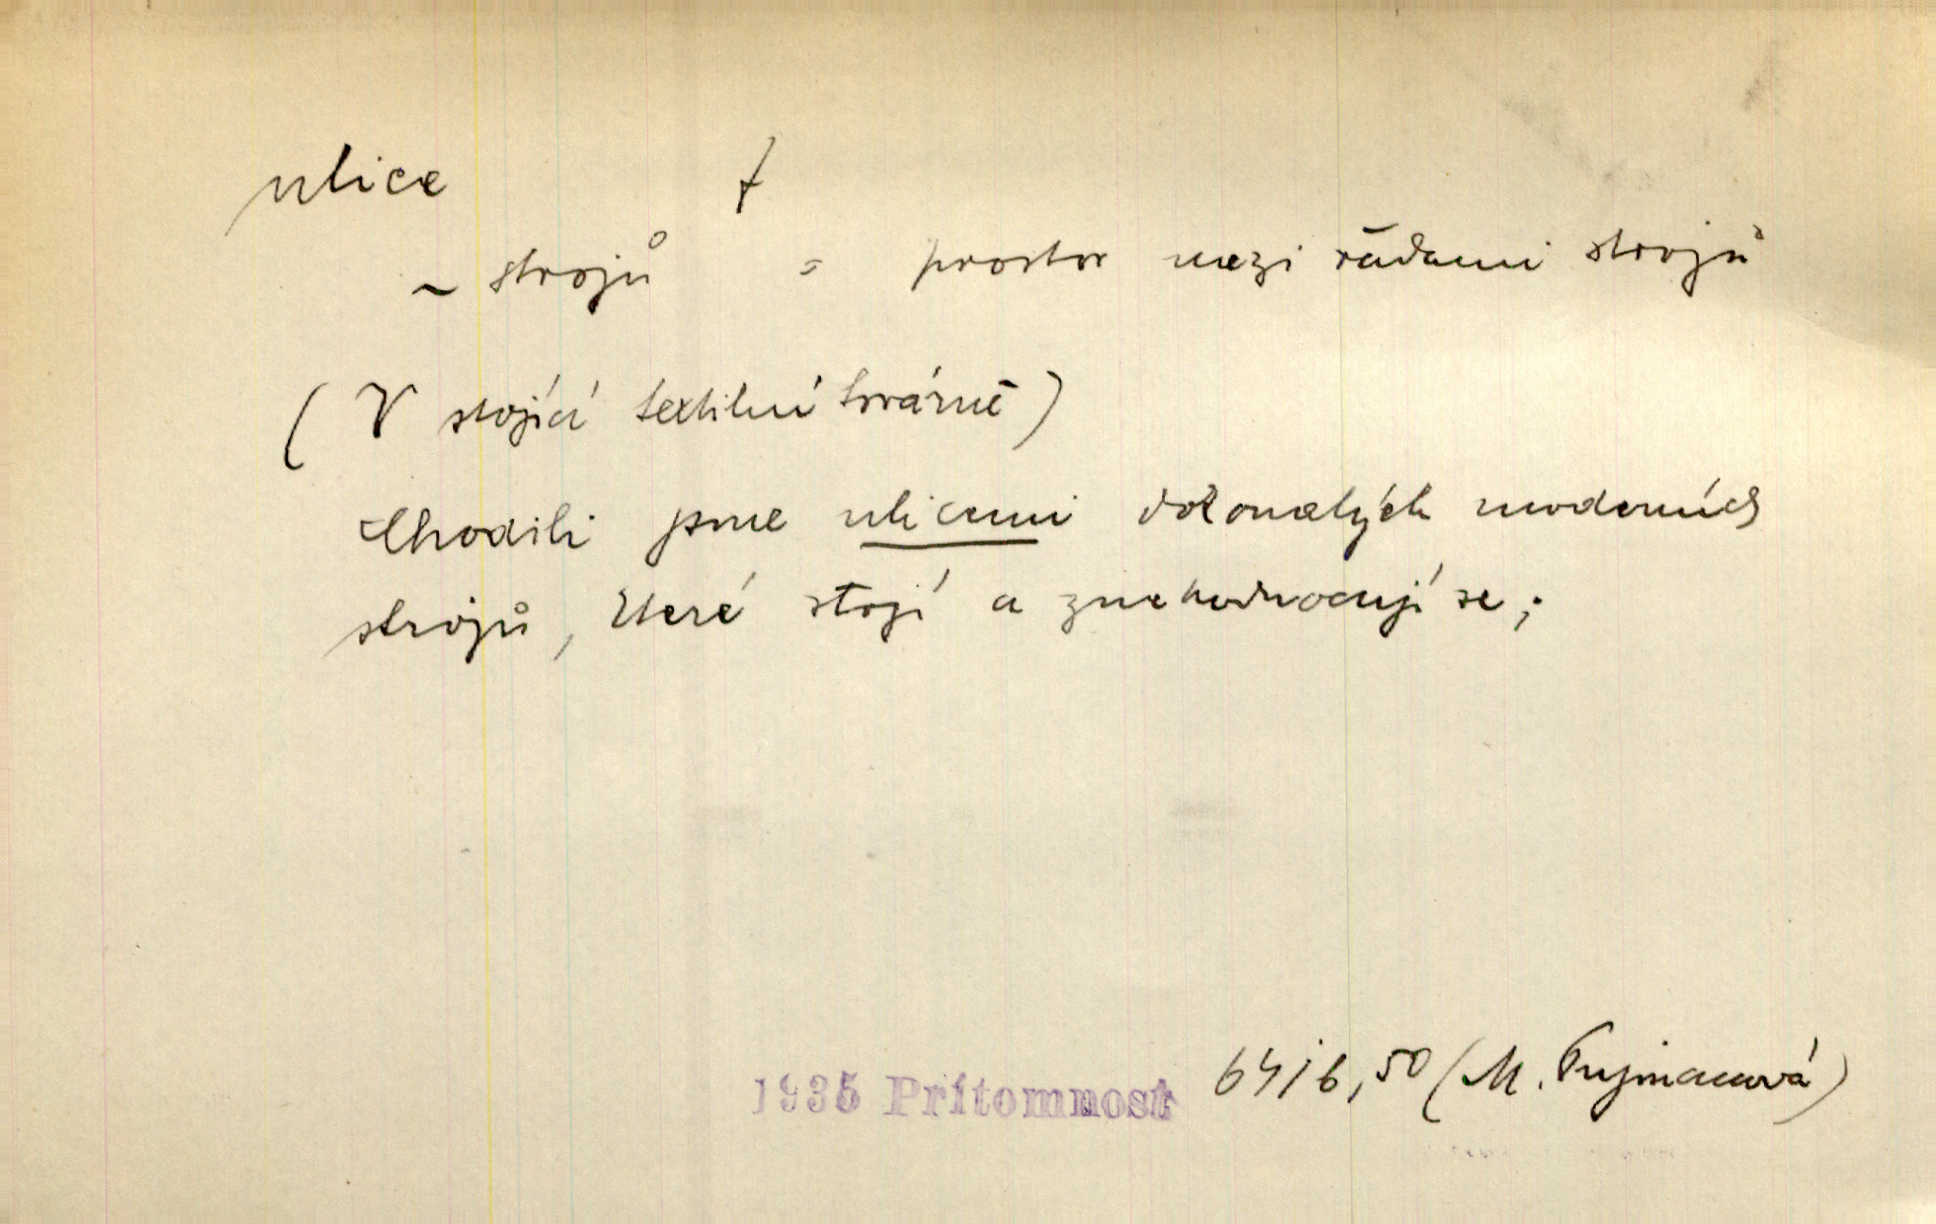 ulice f
~ strojů = prostor mezi řadami strojů
(V stojící textilní továrně)
Chodili jsme ulicemi dokonalých moderních
strojů, které stojí a znehodnocují se;
1935 Prítomnost 64/6, 50 (M. Pujmanová)